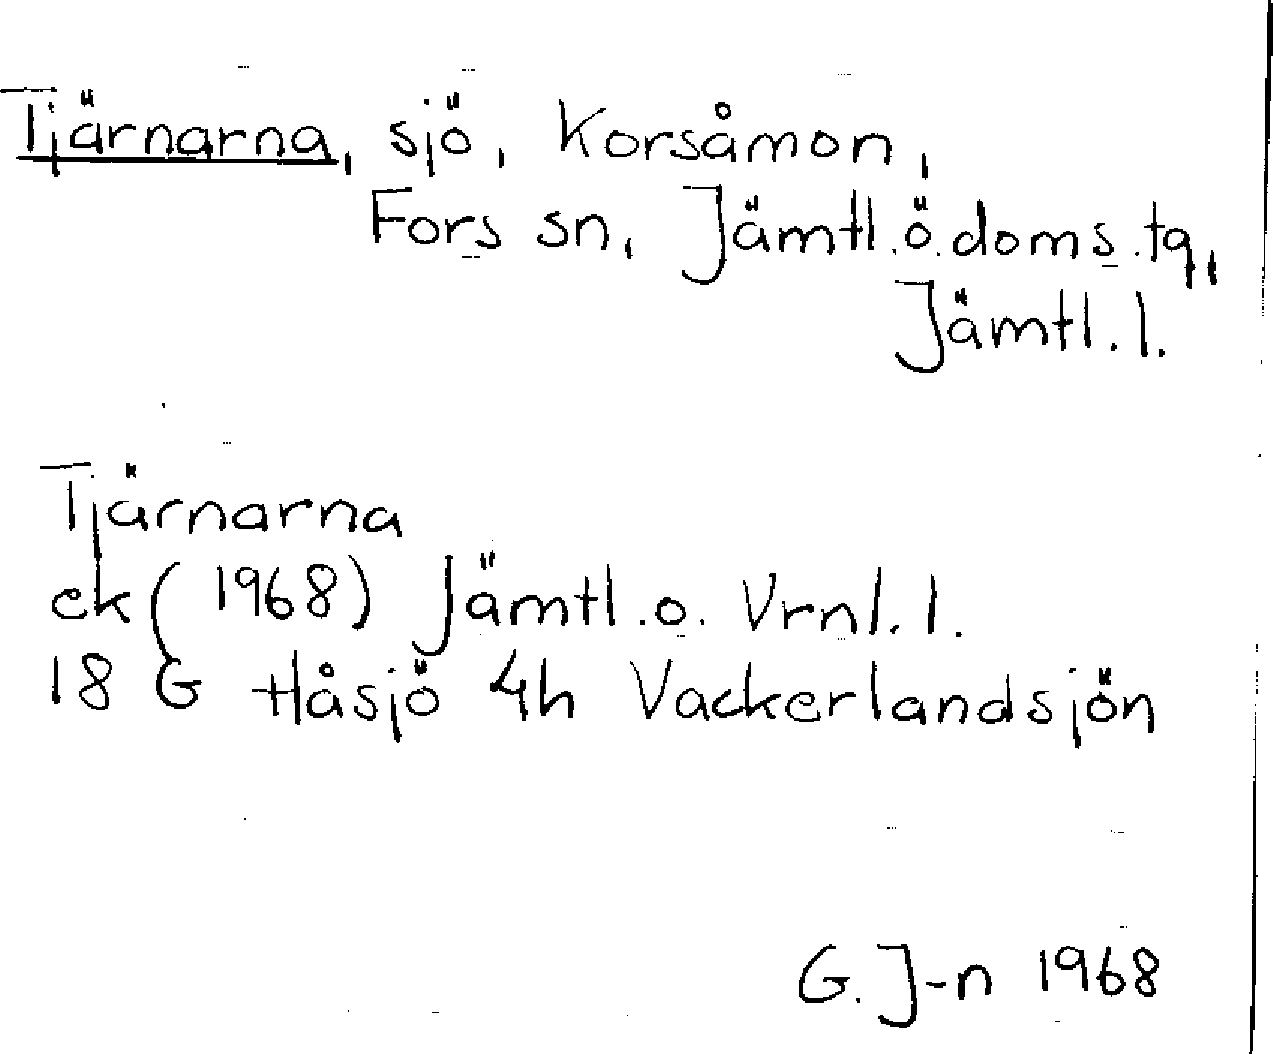 Tjärnarna, sjö, Korsåmon,
Fors sn, Jämtl.ö.doms.tg,
Jämtl.l.
Tjärnarna
ek (1968) Jämtl.o. Vrnl.l.
18 G Håsjö 4h Vackerlandsjön
G. J-n 1968